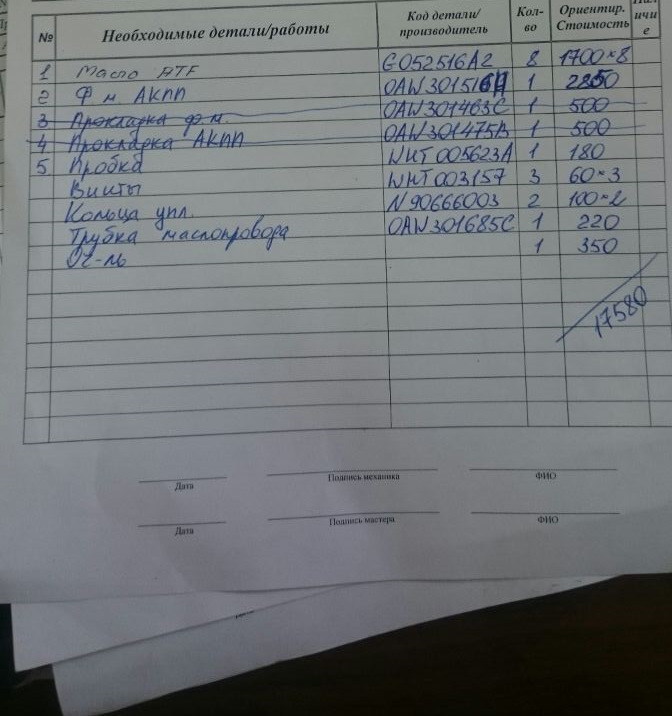 № Необходимые детали/работы Код детали/производитель Кол-во Ориентир. Стоимость
1 Масло ATF G052516A2 8 1700×8
2 Ф.м. АКПП 0AW301516H 1 2850
3 Прокладка ф.м. 0AW301463C 1 500
4 Прокладка АКПП 0AW301475B 1 500
5 Пробка WHT005623A 1 180
Винты WHT003157 3 60×3
Кольца упл. N90666003 2 100×2
Трубка маслопровода 0AW301685C 1 220
Оч-ль 1 350
17580
Дата Подпись механика ФИО
Дата Подпись мастера ФИО